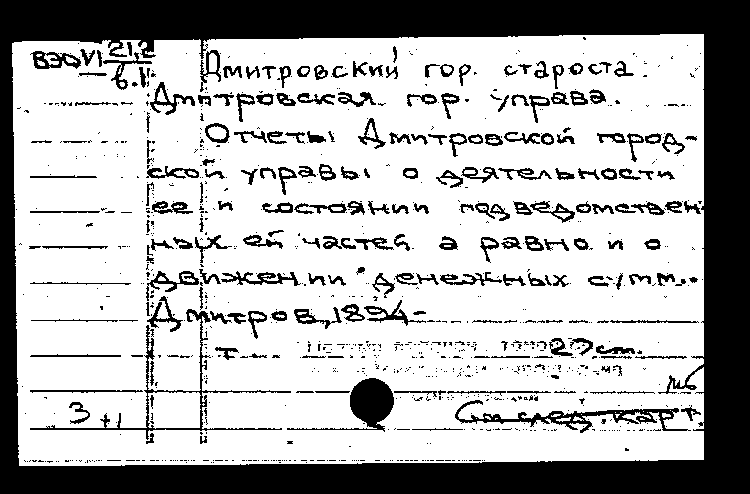 ВЭО VI 21,2
в.1 Дмитровский гор. староста.
Дмитровская гор. управа.
Отчеты Дмитровской город-
ской управы о деятельности
ее и состоянии подведомствен-
ных ей частей а равно и о
движении денежных сумм..
Дмитров, 1894-
т. 27 cm.
мб
3 +1 См след. карт.